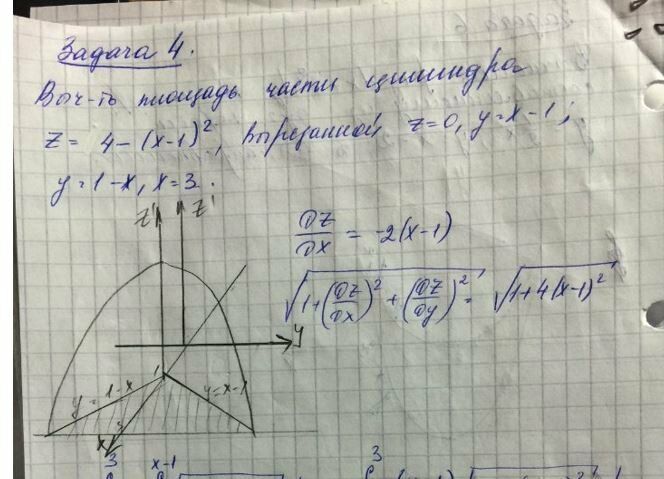 Задача 4.
Выч-ть площадь части цилиндра
z = 4 - (x-1)², вырезанной z=0, y=x-1;
y=1-x, x=3.
z' z'
∂z/∂x = -2(x-1)
√(1+(∂z/∂x)² + (∂z/∂y)²) = √(1+4(x-1)²)
y
1
y=1-x y=x-1
3
x
3 x-1 3